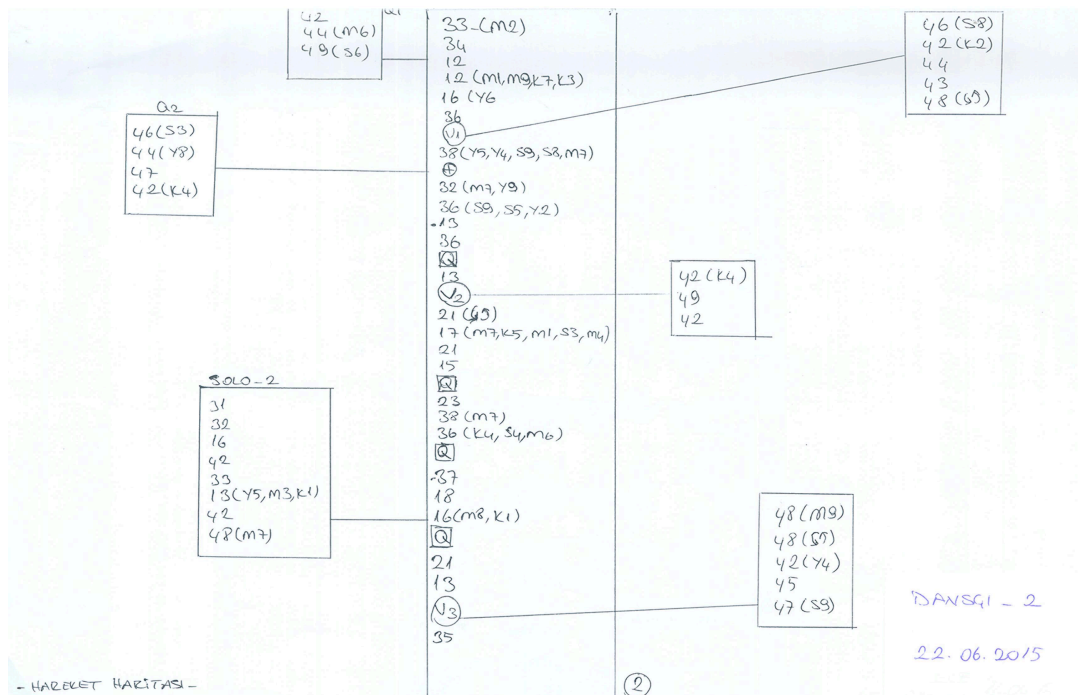 Q1
42
44(M6)
49(S6)
Q2
46(S3)
44(Y8)
47
42(K4)
SOLO-2
31
32
16
42
33
13(Y5,M3,K1)
42
48(M7)
33-(M2)
34
12
12(M1,M9,K7,K3)
16(Y6
36
V1
38(Y5,Y4,S9,S8,M7)
⊕
32(M7,Y9)
36(S9,S5,Y2)
-13
36
Q
13
V2
21
17(M7,K5,M1,S3,M4)
21
15
Q
23
38(M7)
36(K4,S4,M6)
Q
-37
18
16(M8,K1)
Q
21
13
V3
35
46(S8)
42(K2)
44
43
48
42(K4)
49
42
48(M9)
48
42(Y4)
45
47(S9)
DANSÇI-2
22.06.2015
-HAREKET HARİTASI-
2